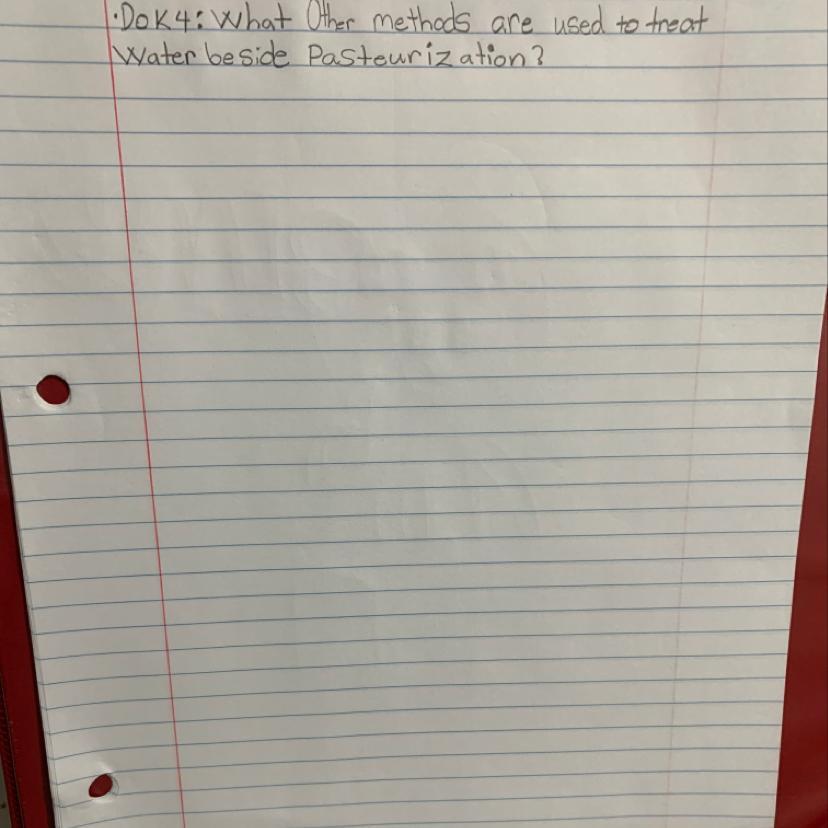 ·DOK4: What Other methods are used to treat
Water beside Pasteurization?